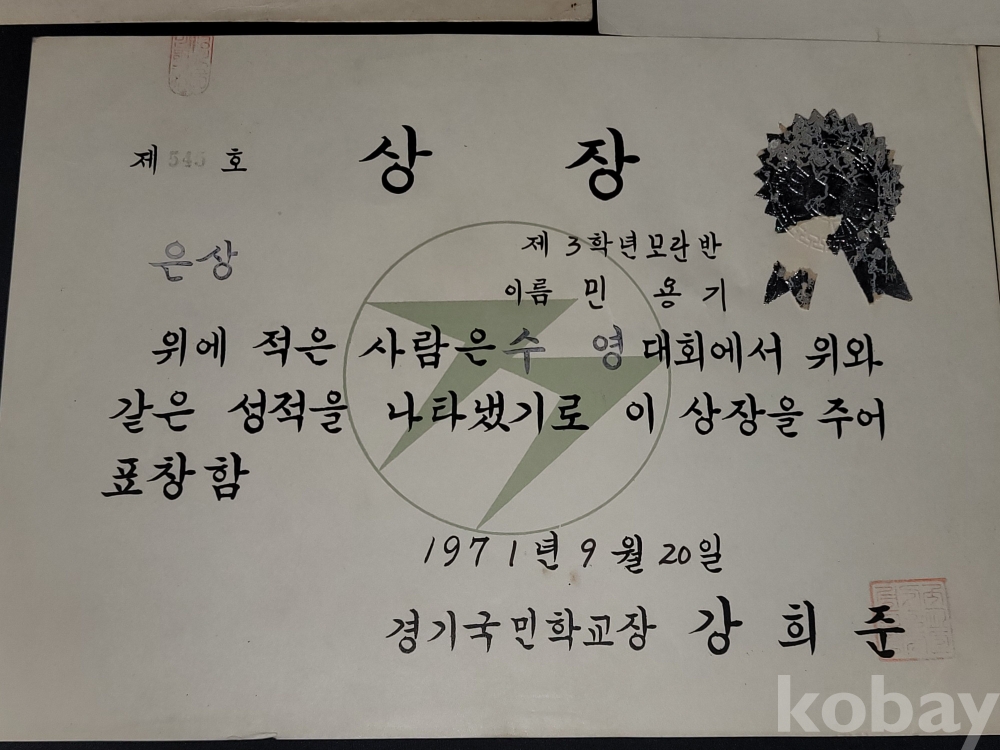 상장
제 545 호
은상
제 3학년모란반
이름 민용기
위에 적은 사람은 수영대회에서 위와
같은 성적을 나타냈기로 이 상장을 주어
표창함
1971년 9월 20일
경기국민학교장 강희준
kobay